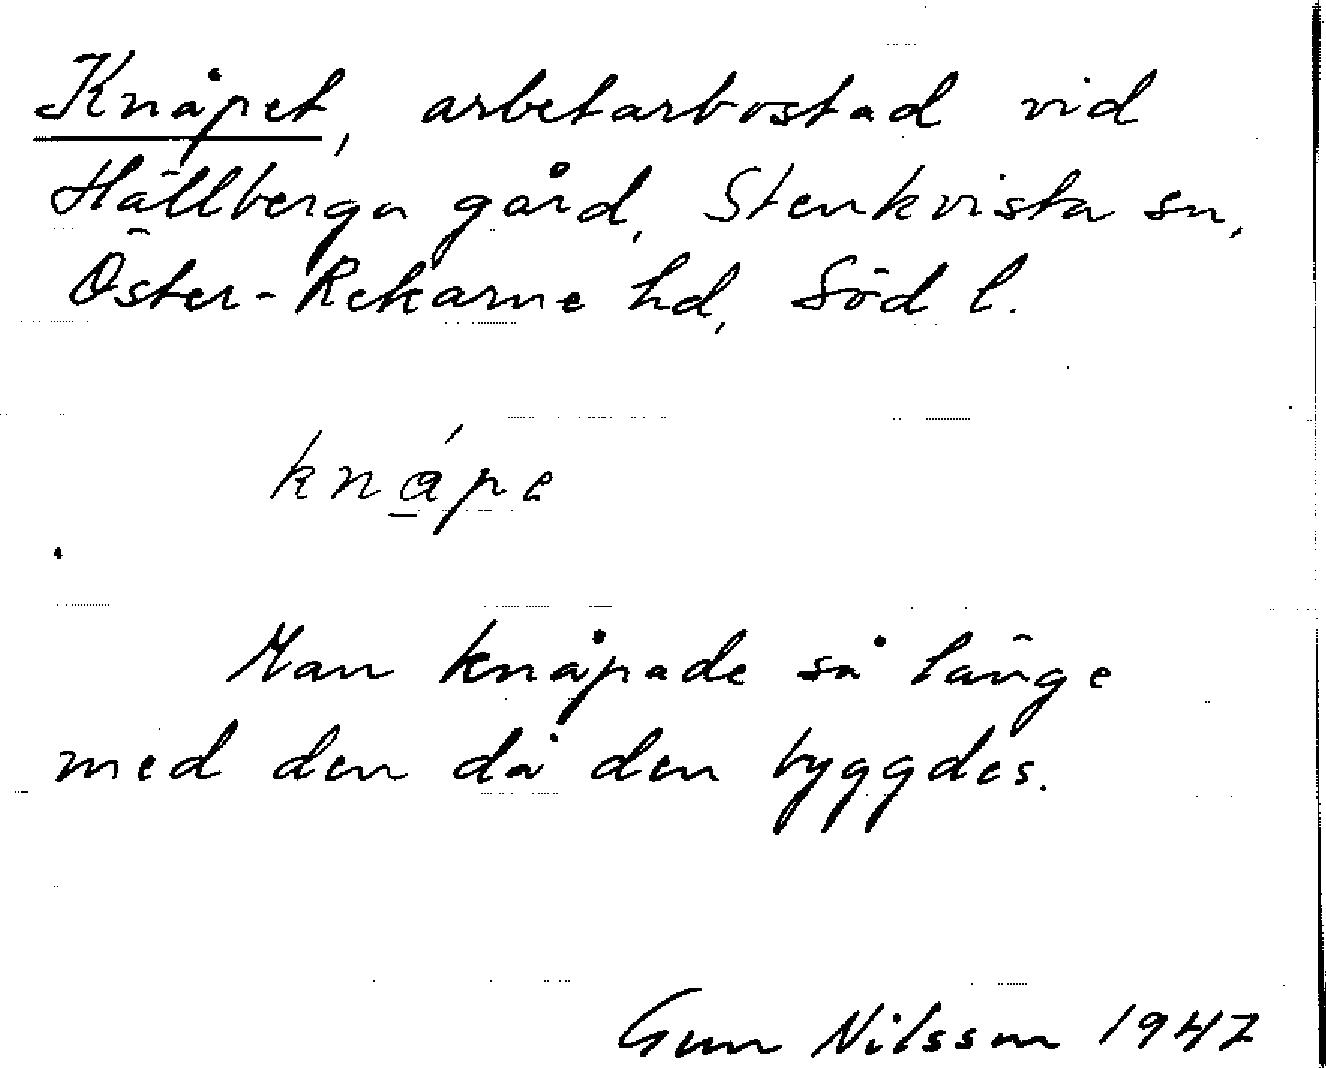 Knåpet, arbetarbostad vid
Hällberga gård, Stenkvista sn,
Öster-Rekarne hd, Söd l.
knápe
Man knåpade så länge
med den då den byggdes.
Gun Nilsson 1947